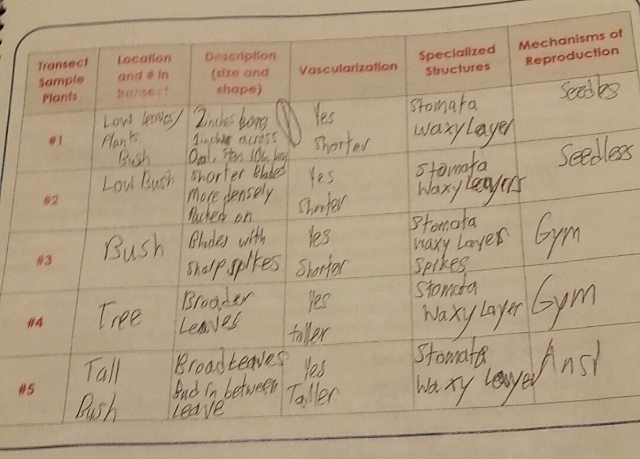 Transect Sample Plants
Location and # in transect
Description (size and shape)
Vascularization
Specialized Structures
Mechanisms of Reproduction
#1
Low leaves/
Plants
Bush
2inches long
across
Oval,
Yes
Shorter
Stomata
Waxy Layer
Seedles
#2
Low Bush
Shorter blades
More densely
Packed on
Yes
Shorter
Stomata
Waxy Layers
Seedless
#3
Bush
Blades with
sharp spikes
Yes
Shorter
Stomata
Waxy Layer
Spikes
Gym
#4
Tree
Broader
Leaves
Yes
taller
Stomata
Waxy Layer
Gym
#5
Tall
Bush
Broad Leaves
Bud in between
Leave
Yes
Taller
Stomata
Waxy Layer